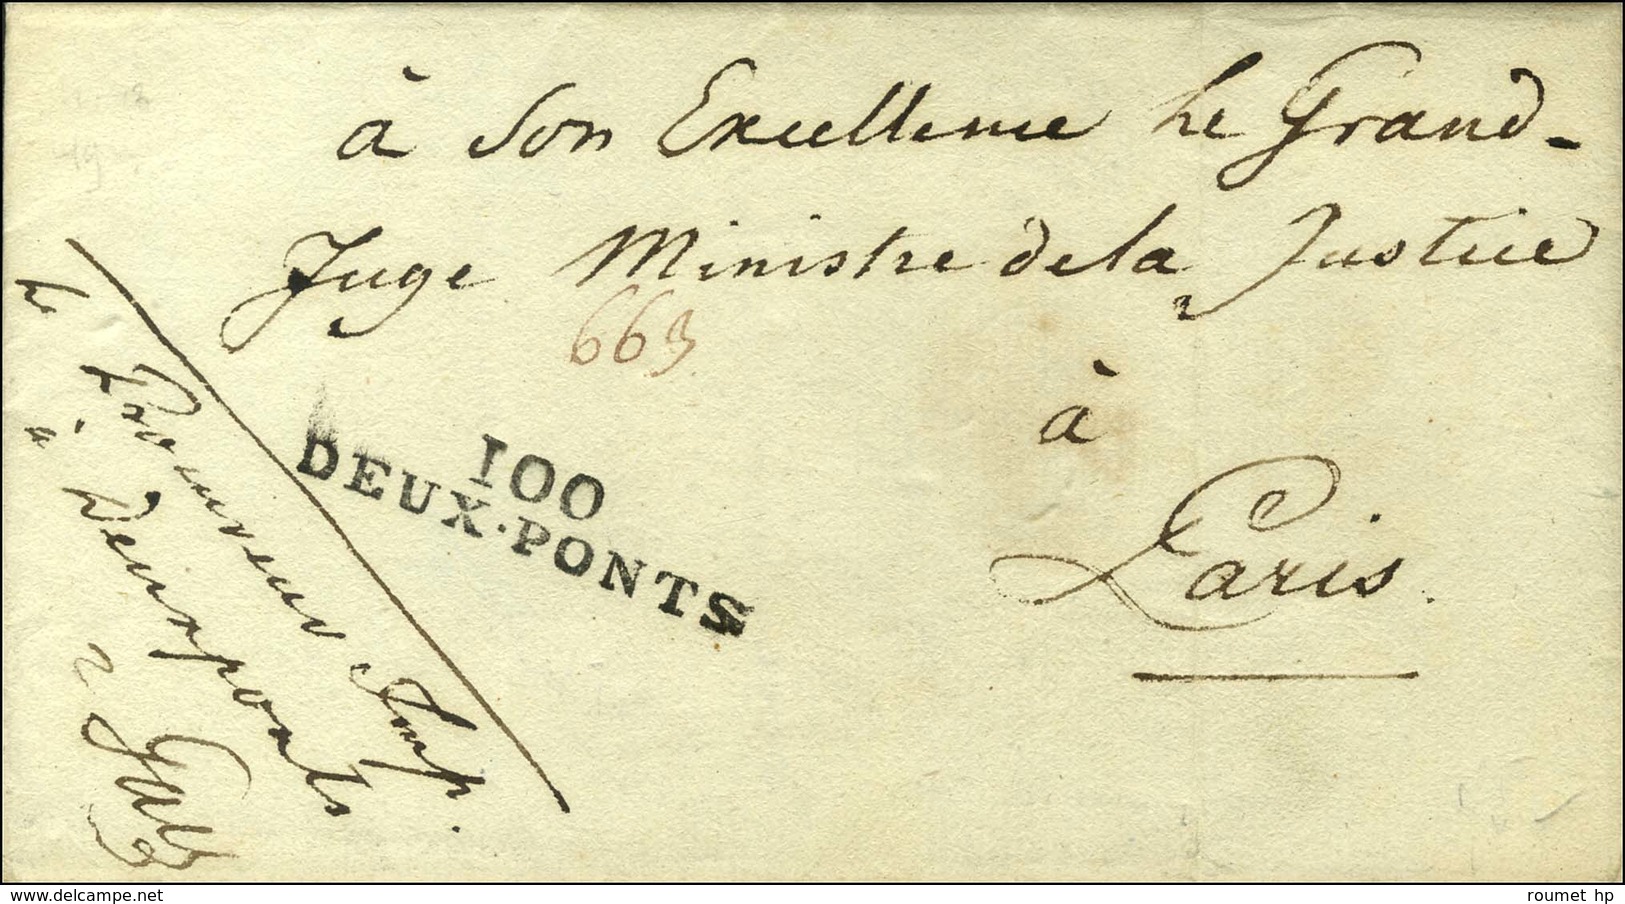 à Son Excellence Le Grand-
Juge Ministre de la Justice
663
à
Paris.
100
DEUX·PONTS
Le
Procureur Imp.
à Deuxponts
delcampe.net
roumet hp